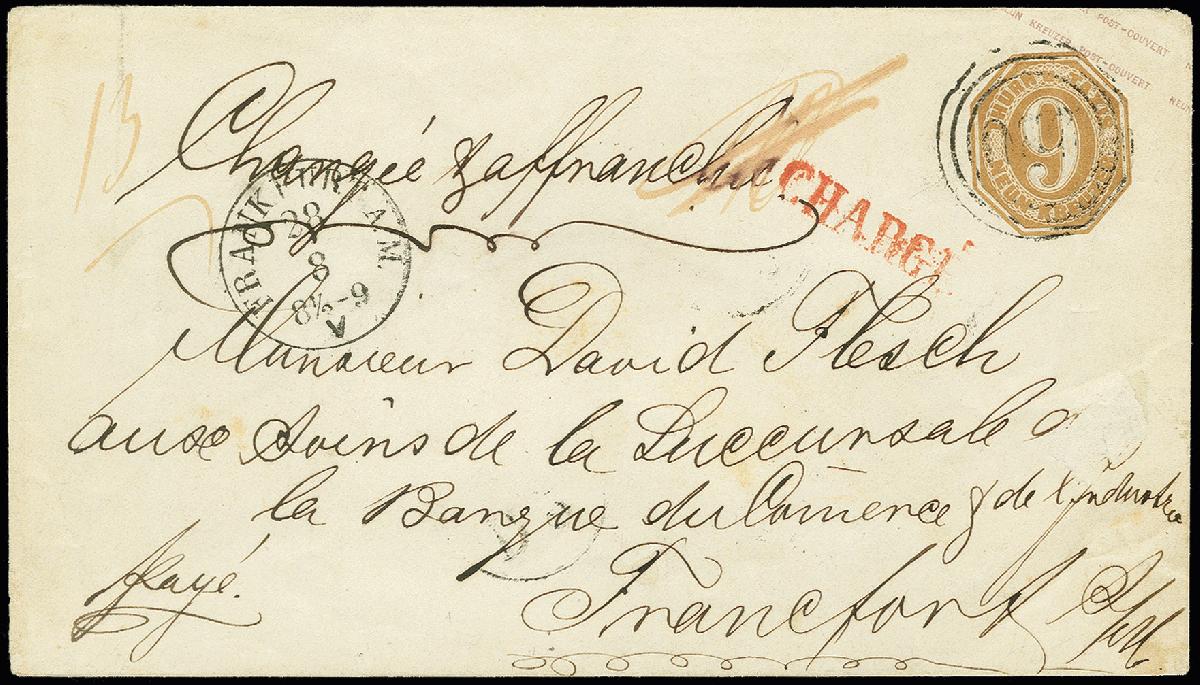 POST-COUVERT
KREUZER POST-COUVERT NEUN
THURN TAXIS
9
NEUN KREUZER
13
Chargée & affranchie
CHARGÉ
FRANKFURT A. M.
28
8
8½-9
V
Monsieur David Flesch
aux Soins de la Succursale d
la Banque du Comerce & de l'industrie
payé.
Francfort s/M